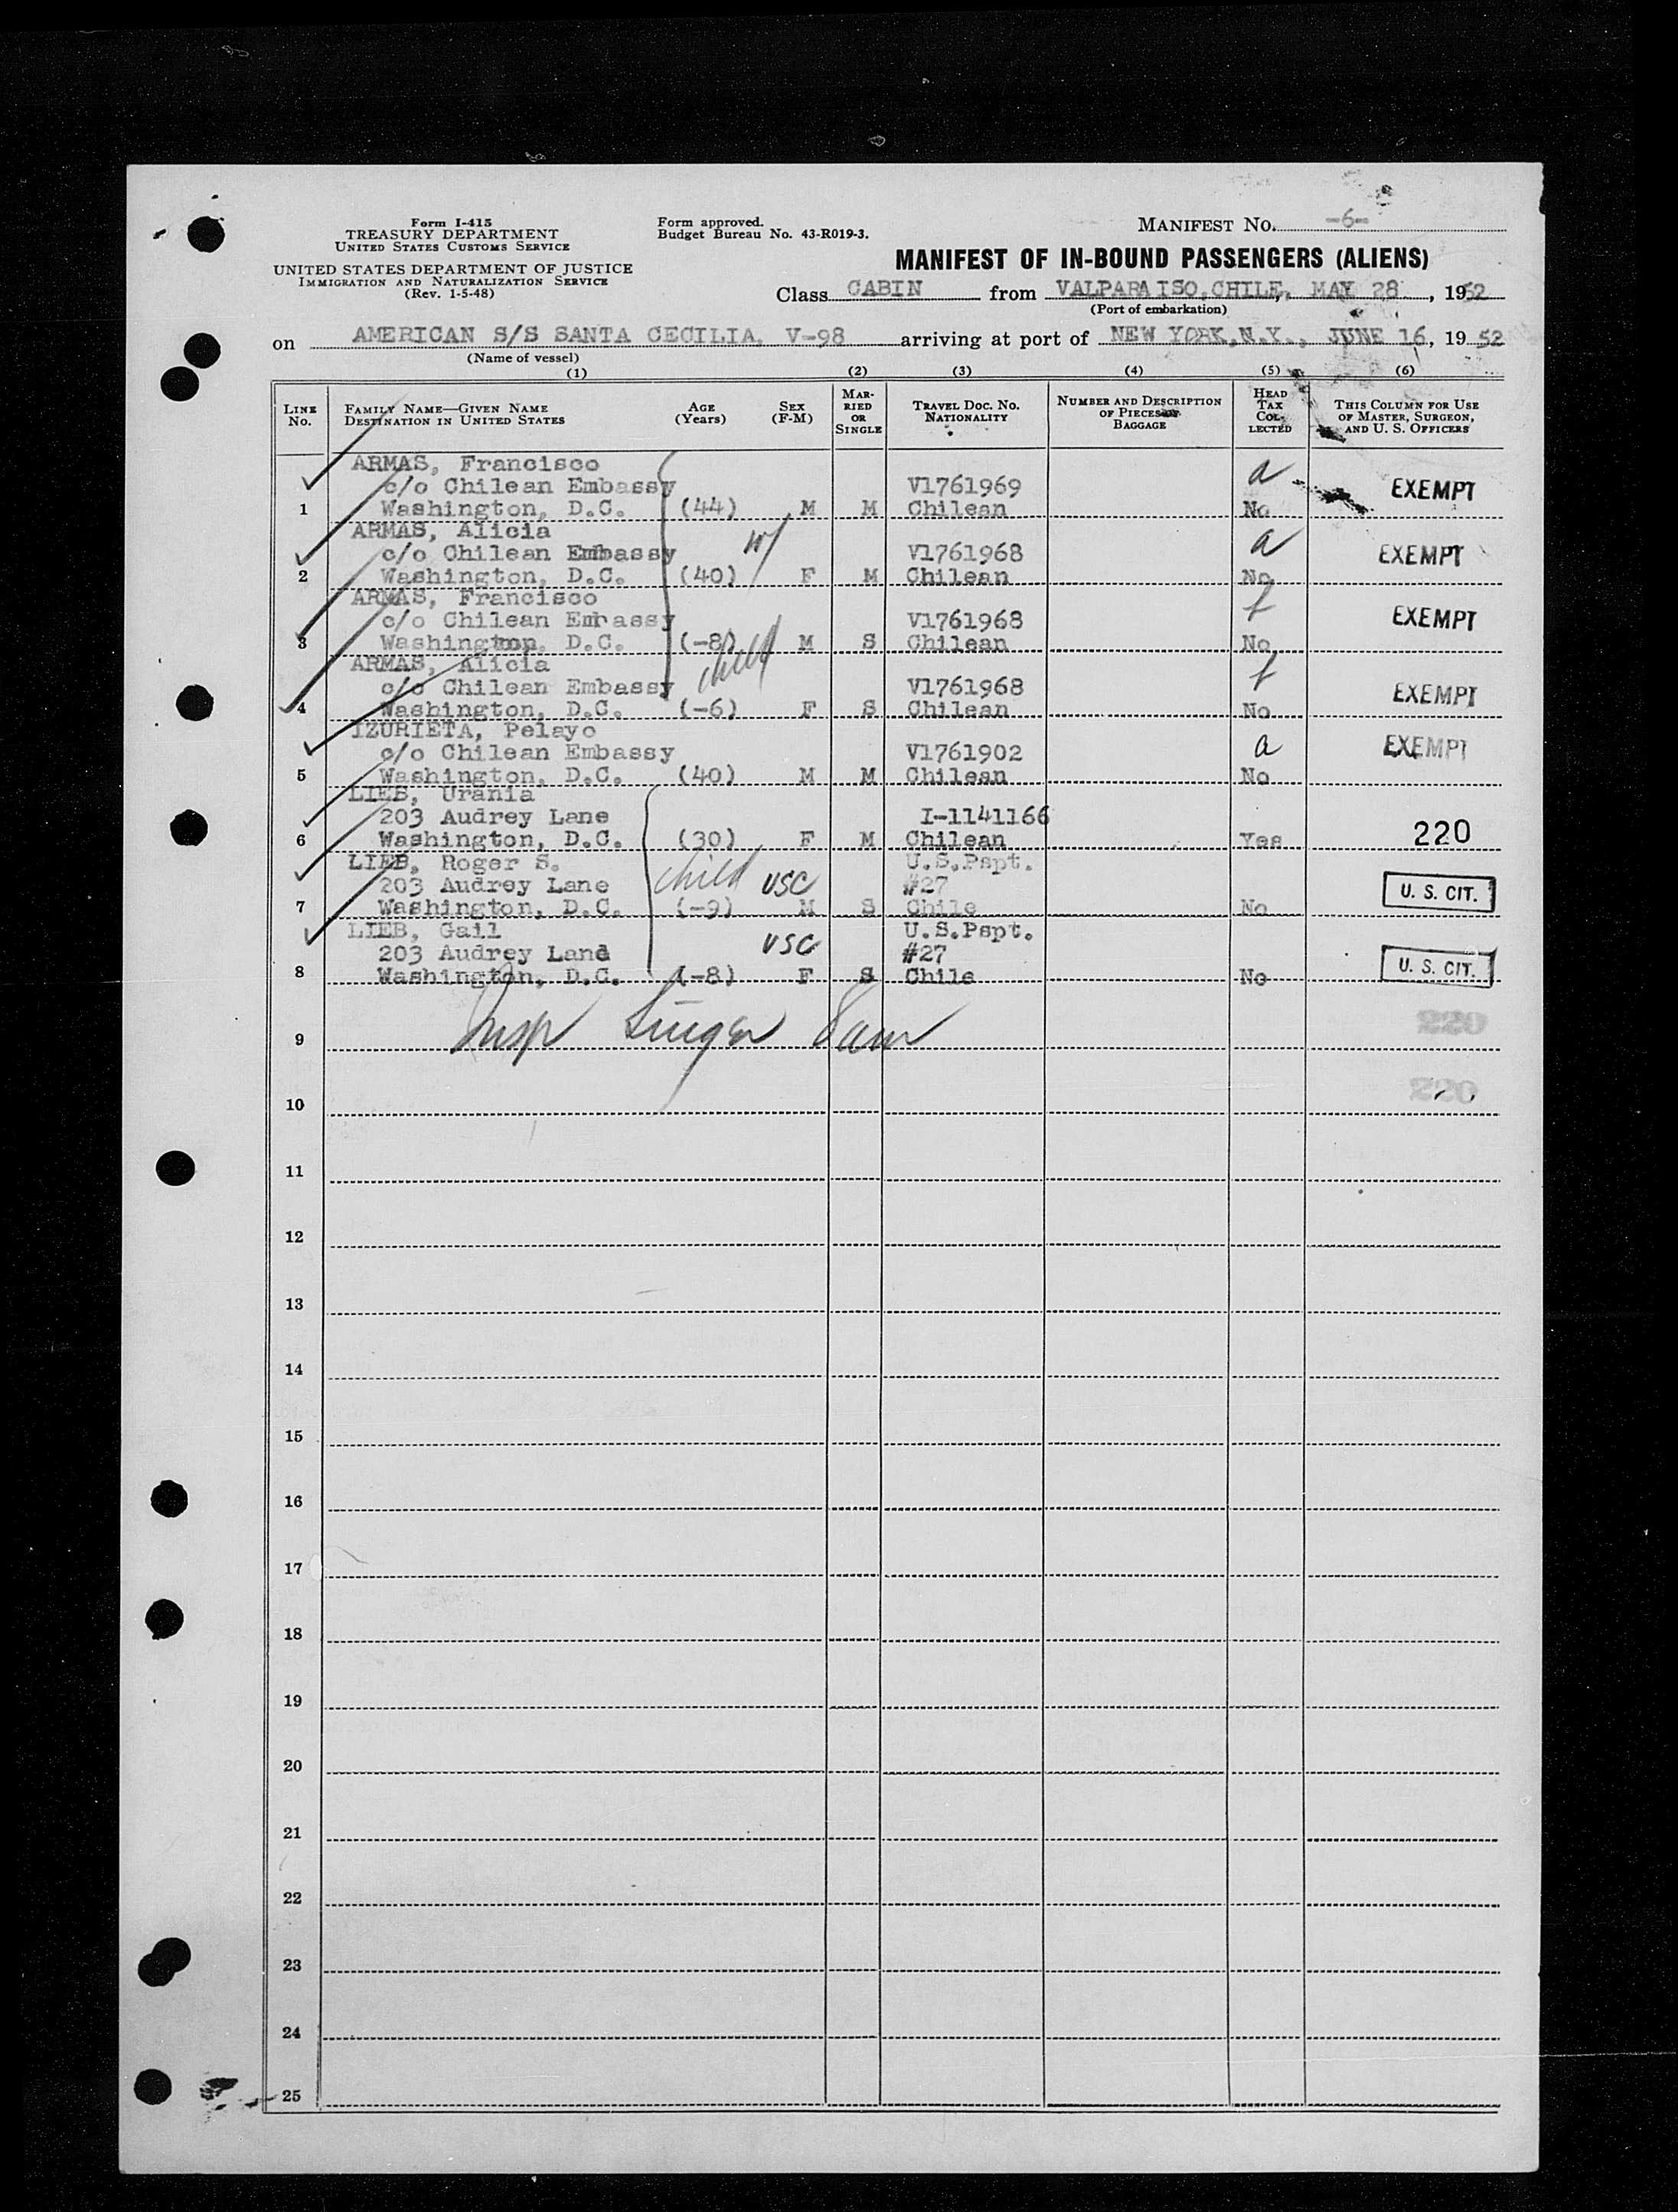 Form I-415
TREASURY DEPARTMENT
UNITED STATES CUSTOMS SERVICE
UNITED STATES DEPARTMENT OF JUSTICE
IMMIGRATION AND NATURALIZATION SERVICE
(Rev. 1-5-48)
Form approved.
Budget Bureau No. 43-R019-3.
MANIFEST NO. -6-
MANIFEST OF IN-BOUND PASSENGERS (ALIENS)
Class CABIN from VALPARAISO,CHILE, MAY 28 , 1952
(Port of embarkation)
on AMERICAN S/S SANTA CECILIA, V-98 arriving at port of NEW YORK,N.Y., JUNE 16, 1952
(Name of vessel)
(1) (2) (3) (4) (5) (6)
LINE NO. FAMILY NAME—GIVEN NAME DESTINATION IN UNITED STATES AGE (Years) SEX (F-M) MARRIED OR SINGLE TRAVEL DOC. NO. NATIONALITY NUMBER AND DESCRIPTION OF PIECES OF BAGGAGE HEAD TAX COLLECTED THIS COLUMN FOR USE OF MASTER, SURGEON, AND U. S. OFFICERS
ARMAS, Francisco a
c/o Chilean Embassy V1761969 EXEMPT
1 Washington, D.C. (44) M M Chilean No
ARMAS, Alicia w/ a
c/o Chilean Embassy V1761968 EXEMPT
2 Washington, D.C. (40) F M Chilean No
ARMAS, Francisco f
c/o Chilean Embassy V1761968 EXEMPT
3 Washington, D.C. (-8) M S Chilean No
ARMAS, Alicia child f
c/o Chilean Embassy V1761968 EXEMPT
4 Washington, D.C. (-6) F S Chilean No
IZURIETA, Pelayo a EXEMPT
c/o Chilean Embassy V1761902
5 Washington, D.C. (40) M M Chilean No
LIEB, Urania
203 Audrey Lane I-1141166
6 Washington, D.C. (30) F M Chilean Yes 220
LIEB, Roger S. U.S.Pspt.
203 Audrey Lane child USC #27 U. S. CIT.
7 Washington, D.C. (-9) M S Chile No
LIEB, Gail USC U.S.Pspt.
203 Audrey Lane #27 U. S. CIT.
8 Washington, D.C. (-8) F S Chile No
Insp 220
9
10 220
11
12
13
14
15
16
17
18
19
20
21
22
23
24
25